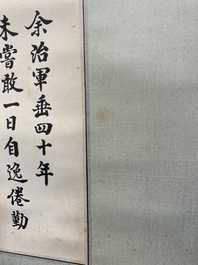 余治軍垂四十年
未嘗敢一日自逸倦勤